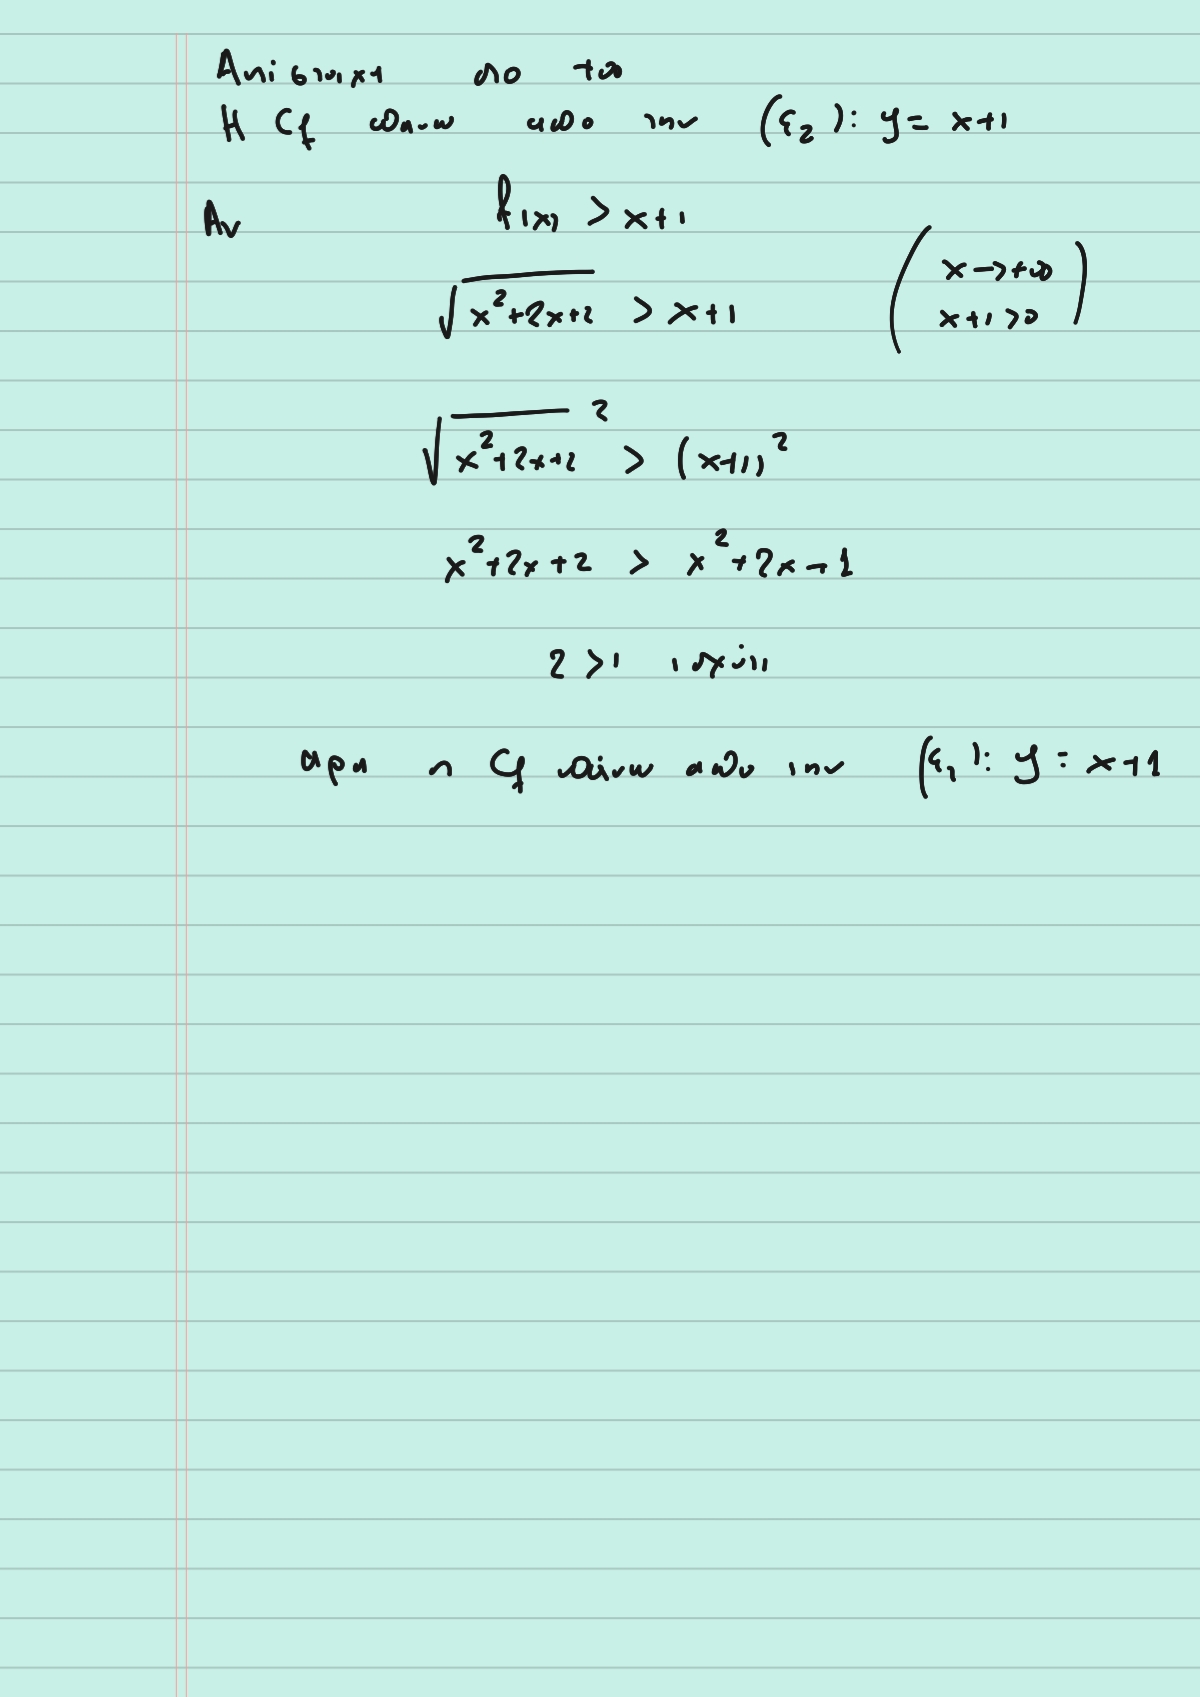 Αντίστοιχα στο +∞
Η Cf πάνω από την (ε₂): y = x+1
Αν f(x) > x+1
√(x²+2x+2) > x+1 (x→+∞ x+1>0)
√(x²+2x+2)² > (x+1)²
x²+2x+2 > x²+2x+1
2>1 ισχύει
αρα η Cf πάνω από την (ε₂): y = x+1